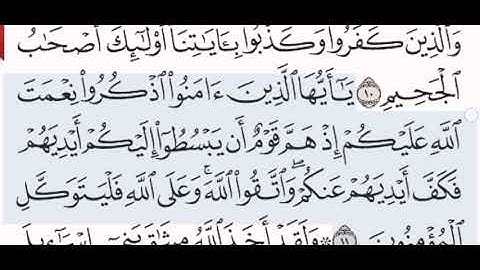 وَالَّذِينَ كَفَرُوا وَكَذَّبُوا بِـَٔايَـٰتِنَا أُو۟لَـٰٓئِكَ أَصْحَـٰبُ
ٱلْجَحِيمِ ١٠ يَـٰٓأَيُّهَا ٱلَّذِينَ ءَامَنُوا ٱذْكُرُوا نِعْمَتَ
ٱللَّهِ عَلَيْكُمْ إِذْ هَمَّ قَوْمٌ أَن يَبْسُطُوٓا إِلَيْكُمْ أَيْدِيَهُمْ
فَكَفَّ أَيْدِيَهُمْ عَنكُمْ ۖ وَٱتَّقُوا ٱللَّهَ ۚ وَعَلَى ٱللَّهِ فَلْيَتَوَكَّلِ
ٱلْمُؤْمِنُونَ ١١ ۞ وَلَقَدْ أَخَذَ ٱللَّهُ مِيثَـٰقَ بَنِىٓ إِسْرَٰٓءِيلَ